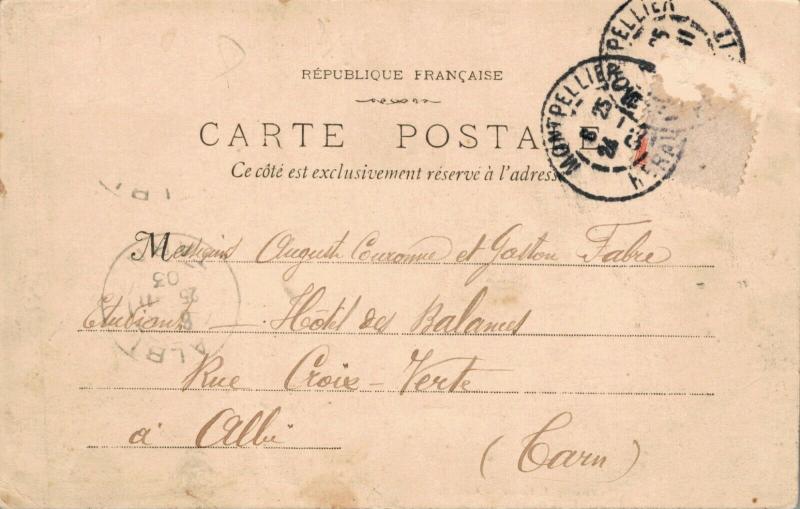 RÉPUBLIQUE FRANÇAISE
CARTE POSTALE
Ce côté est exclusivement réservé à l'adresse
MONTPELLIER
HERAULT
Messieurs Auguste Couronne et Gaston Fabre
Etudiants — Hôtel des Balances
Rue Croix-Verte
à Albi
(Tarn)
ALBI
03